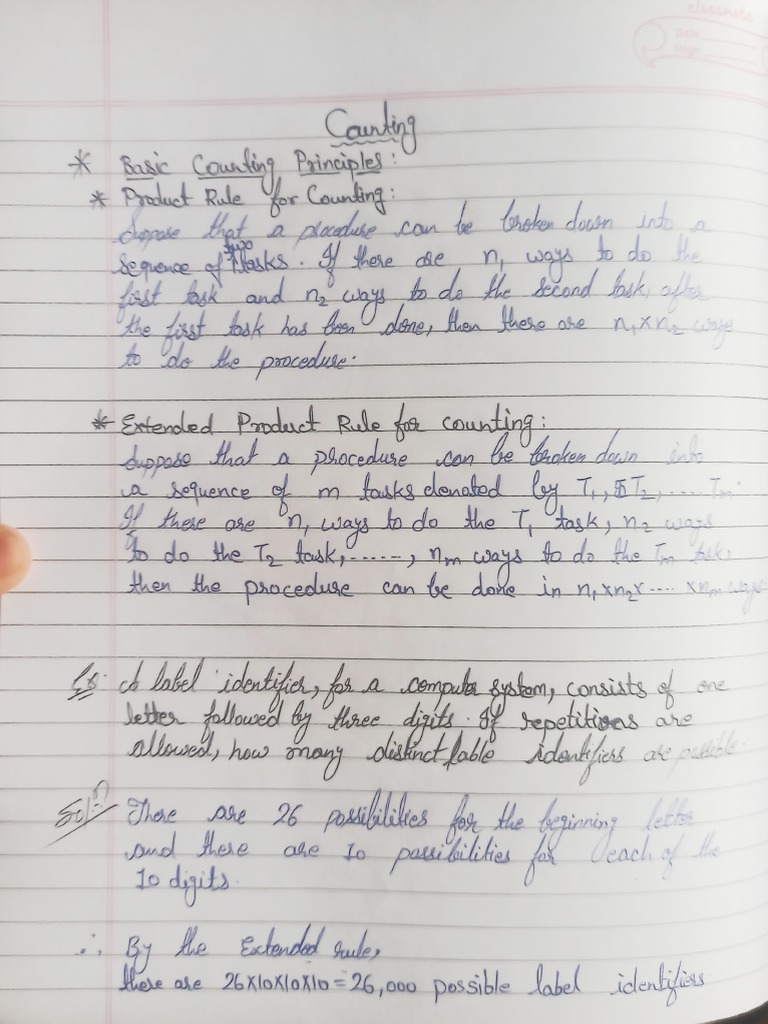 classmate
Date
Page
Counting
* Basic Counting Principles:
* Product Rule for Counting:
Suppose that a procedure can be broken down into a
sequence of two tasks. If there are n₁ ways to do the
first task and n₂ ways to do the second task, after
the first task has been done, then there are n₁×n₂ ways
to do the procedure.
* Extended Product Rule for counting:
Suppose that a procedure can be broken down into
a sequence of m tasks denoted by T₁, T₂, ..... Tm.
If there are n₁ ways to do the T₁ task, n₂ ways
to do the T₂ task, ......, nm ways to do the Tm task,
then the procedure can be done in n₁×n₂×.... ×nm ways.
Ex: A label identifier, for a computer system, consists of one
letter followed by three digits. If repetitions are
allowed, how many distinct lable identifiers are possible.
Sol:- There are 26 possibilities for the beginning letter
and there are 10 possibilities for each of the
10 digits.
∴ By the Extended rule,
there are 26×10×10×10=26,000 possible label identifiers